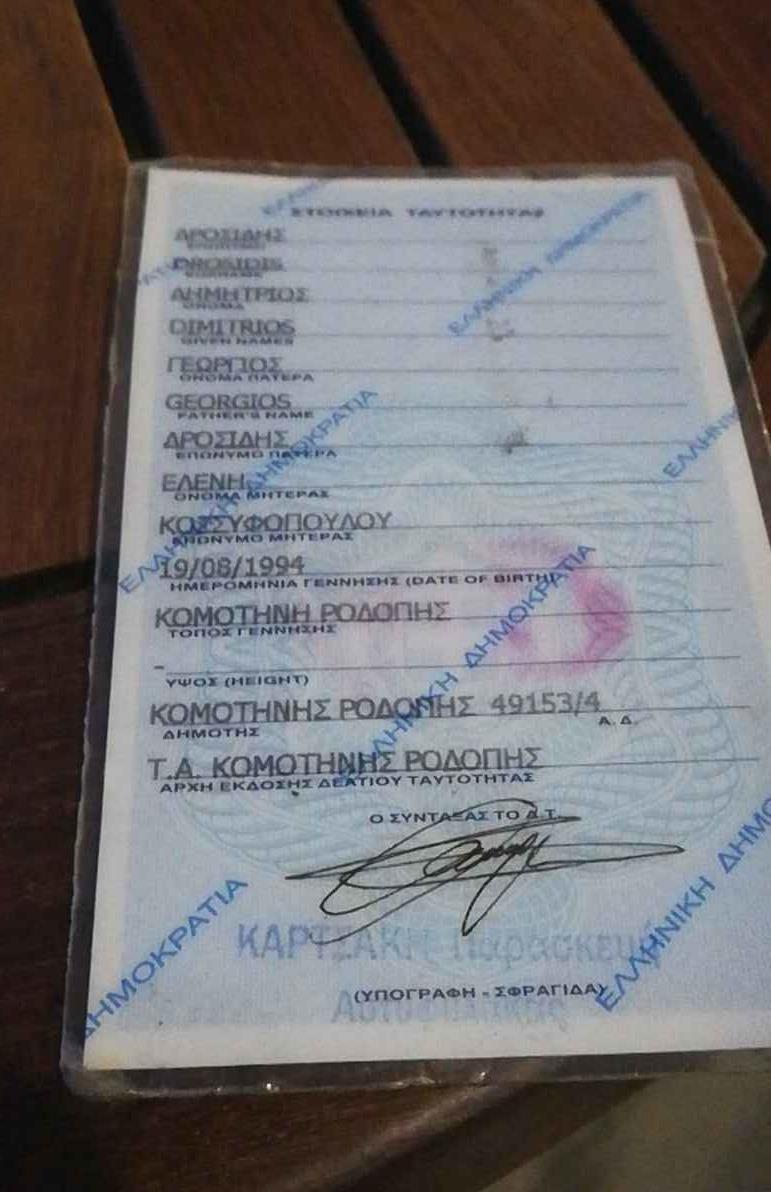 ΣΤΟΙΧΕΙΑ ΤΑΥΤΟΤΗΤΑΣ
ΔΡΟΣΙΔΗΣ
ΕΠΩΝΥΜΟ
DROSIDIS
SURNAME
ΔΗΜΗΤΡΙΟΣ
ΟΝΟΜΑ
DIMITRIOS
GIVEN NAMES
ΓΕΩΡΓΙΟΣ
ΟΝΟΜΑ ΠΑΤΕΡΑ
GEORGIOS
FATHER'S NAME
ΔΡΟΣΙΔΗΣ
ΕΠΩΝΥΜΟ ΠΑΤΕΡΑ
ΕΛΕΝΗ
ΟΝΟΜΑ ΜΗΤΕΡΑΣ
ΚΟΣΣΥΦΟΠΟΥΛΟΥ
ΕΠΩΝΥΜΟ ΜΗΤΕΡΑΣ
19/08/1994
ΗΜΕΡΟΜΗΝΙΑ ΓΕΝΝΗΣΗΣ (DATE OF BIRTH)
ΚΟΜΟΤΗΝΗ ΡΟΔΟΠΗΣ
ΤΟΠΟΣ ΓΕΝΝΗΣΗΣ
-
ΥΨΟΣ (HEIGHT)
ΚΟΜΟΤΗΝΗΣ ΡΟΔΟΠΗΣ 49153/4
ΔΗΜΟΤΗΣ Α.Δ.
Τ.Α. ΚΟΜΟΤΗΝΗΣ ΡΟΔΟΠΗΣ
ΑΡΧΗ ΕΚΔΟΣΗΣ ΔΕΛΤΙΟΥ ΤΑΥΤΟΤΗΤΑΣ
Ο ΣΥΝΤΑΞΑΣ ΤΟ Δ.Τ.
ΚΑΡΤΣΑΚΗ Παρασκευή
(ΥΠΟΓΡΑΦΗ - ΣΦΡΑΓΙΔΑ)
Αστυφύλακας
ΕΛΛΗΝΙΚΗ ΔΗΜΟΚΡΑΤΙΑ
ΕΛΛΗΝΙΚΗ ΔΗΜΟΚΡΑΤΙΑ
ΕΛΛΗΝΙΚΗ ΔΗΜΟΚΡΑΤΙΑ
ΕΛΛΗΝΙΚΗ ΔΗΜΟ
ΔΗΜΟΚΡΑΤΙΑ